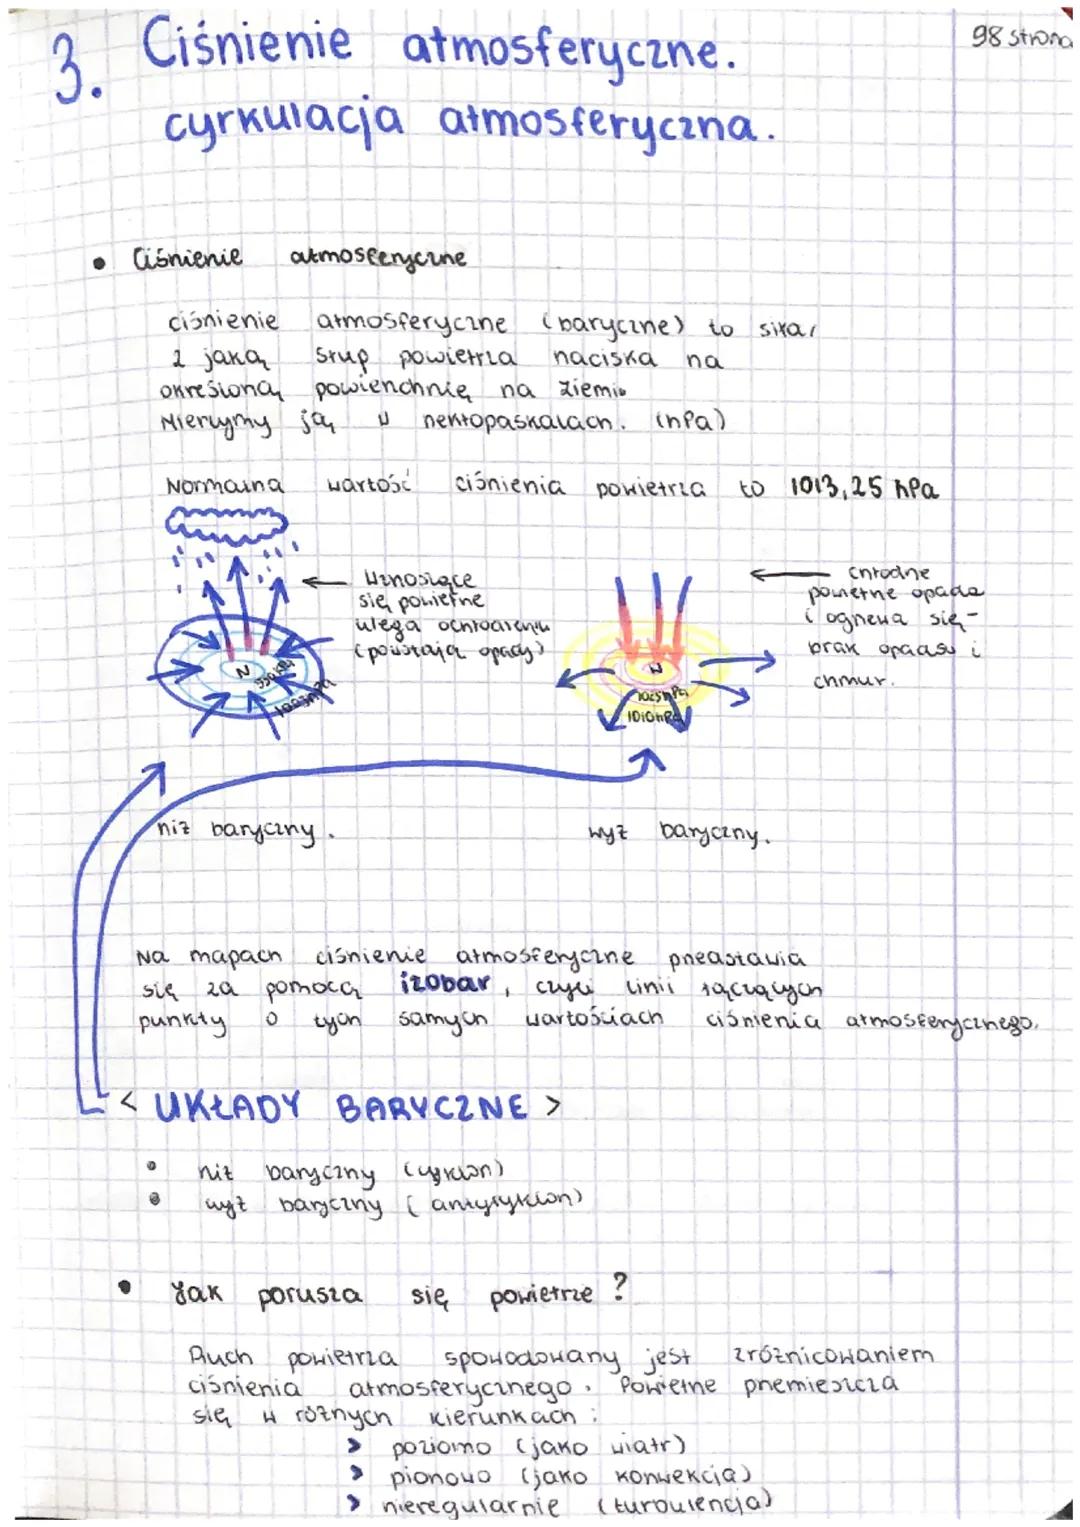 98 strona
3. Ciśnienie atmosferyczne.
cyrkulacja atmosferyczna.
• Ciśnienie atmosferyczne
ciśnienie atmosferyczne (baryczne) to siła,
z jaką słup powietrza naciska na
określoną powierzchnię na ziemi.
Mierzymy ją w hektopaskalach. (hPa)
Normalna wartość ciśnienia powietrza to 1013,25 hPa
Wznoszące
się powietrze
ulega ochłodzeniu
(powstają opady)
N
990hPa
1005hPa
chłodne
powietrze opada
i ogrzewa się -
brak opadów i
chmur.
W
1025hPa
1010hPa
niż baryczny.
wyż baryczny.
Na mapach ciśnienie atmosferyczne przedstawia
się za pomocą izobar, czyli linii łączących
punkty o tych samych wartościach ciśnienia atmosferycznego.
< UKŁADY BARYCZNE >
• niż baryczny (cyklon)
• wyż baryczny (antycyklon)
• Jak porusza się powietrze?
Ruch powietrza spowodowany jest zróżnicowaniem
ciśnienia atmosferycznego. Powietrze przemieszcza
się w różnych kierunkach:
> poziomo (jako wiatr)
> pionowo (jako konwekcja)
> nieregularnie (turbulencja)